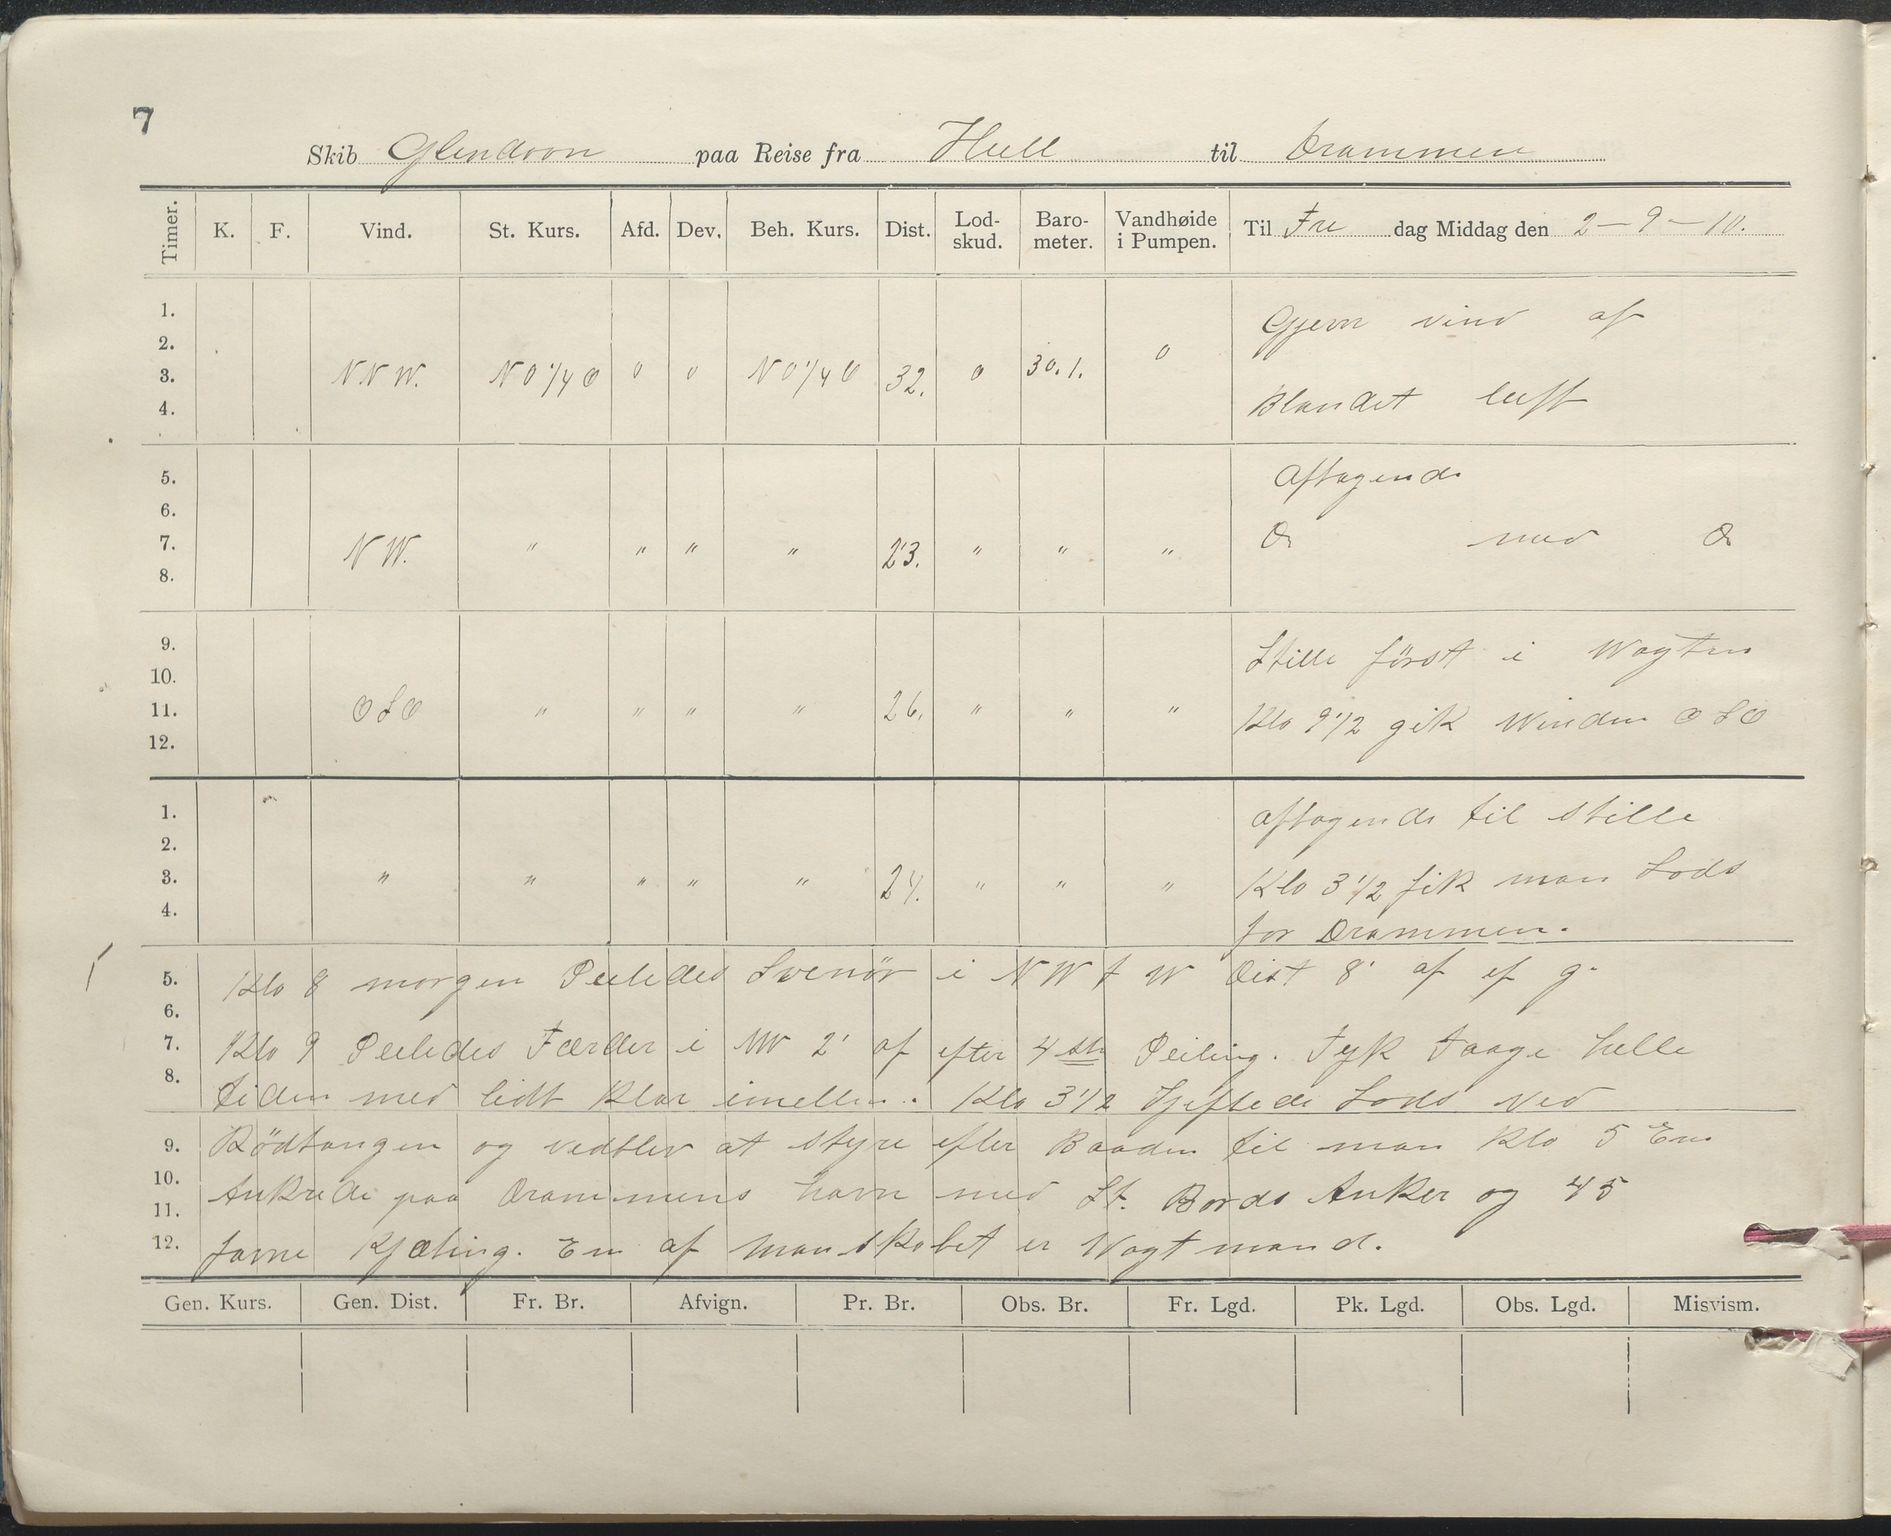 7
Skib Glendoon paa Reise fra Hull til Drammen
Timer. K. F. Vind. St. Kurs. Afd. Dev. Beh. Kurs. Dist. Lod-skud. Baro-meter. Vandhøide i Pumpen. Til Fre dag Middag den 2-9-10.
1.
2.
3.
4.
NNW. NO 1/4 O 0 0 NO 1/4 O 32. 0 30.1. 0
Gjevn vind af
Blandet luft
5.
6.
7.
8.
NW. " " " " 23. " " "
Aftagende
Do med Do
9.
10.
11.
12.
OSO " " " " 26. " " "
Stille först i Wagten
Klo 9 1/2 gik Winden OSO
1.
2.
3.
4.
" " " " " 24. " " "
aftagende til stille
Klo 3 1/2 fik man Lods
for Drammen.
5.
6.
7.
8.
Klo 8 morgen Peiledes Svenör i NW t W Dist 8' af ef g.
Klo 9 Peiledes Færder i NW 2' af efter 4 Peiling. Tyk Taage helle
tiden med lidt klar imellem. Klo 3 1/2 Lods ved
9.
10.
11.
12.
Rödtangen og vedblev at styre efter Baaden til man Klo 5 Em
Ankrede paa Drammens havn med St. Bords Anker og 45
favne Kjæting. En af Manskabet er Vagtmand.
Gen. Kurs. Gen. Dist. Fr. Br. Afvign. Pr. Br. Obs. Br. Fr. Lgd. Pk. Lgd. Obs. Lgd. Misvism.